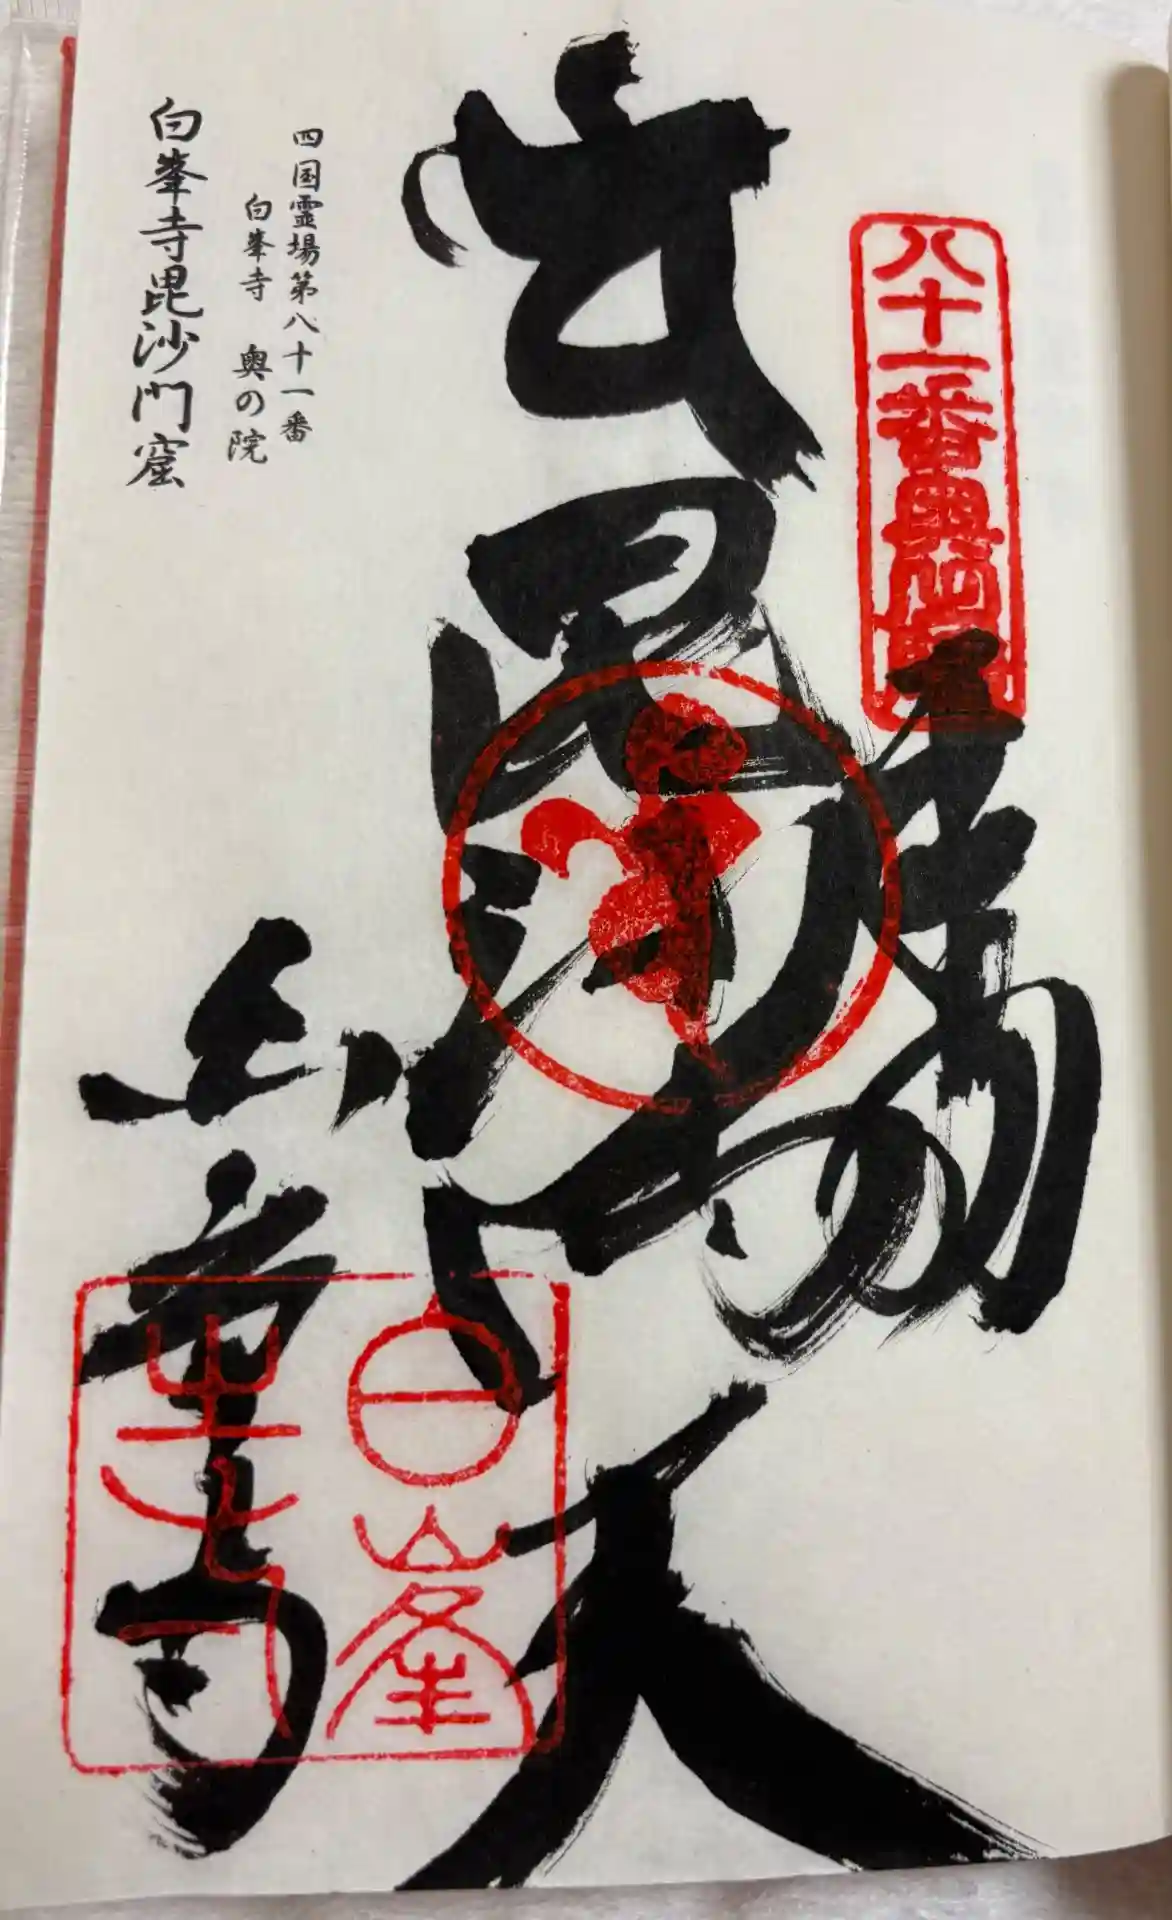 八十一番奥
奉
毘沙門天
四国霊場第八十一番
白峯寺 奥の院
白峯寺毘沙門窟
白峯寺
白峯
寺